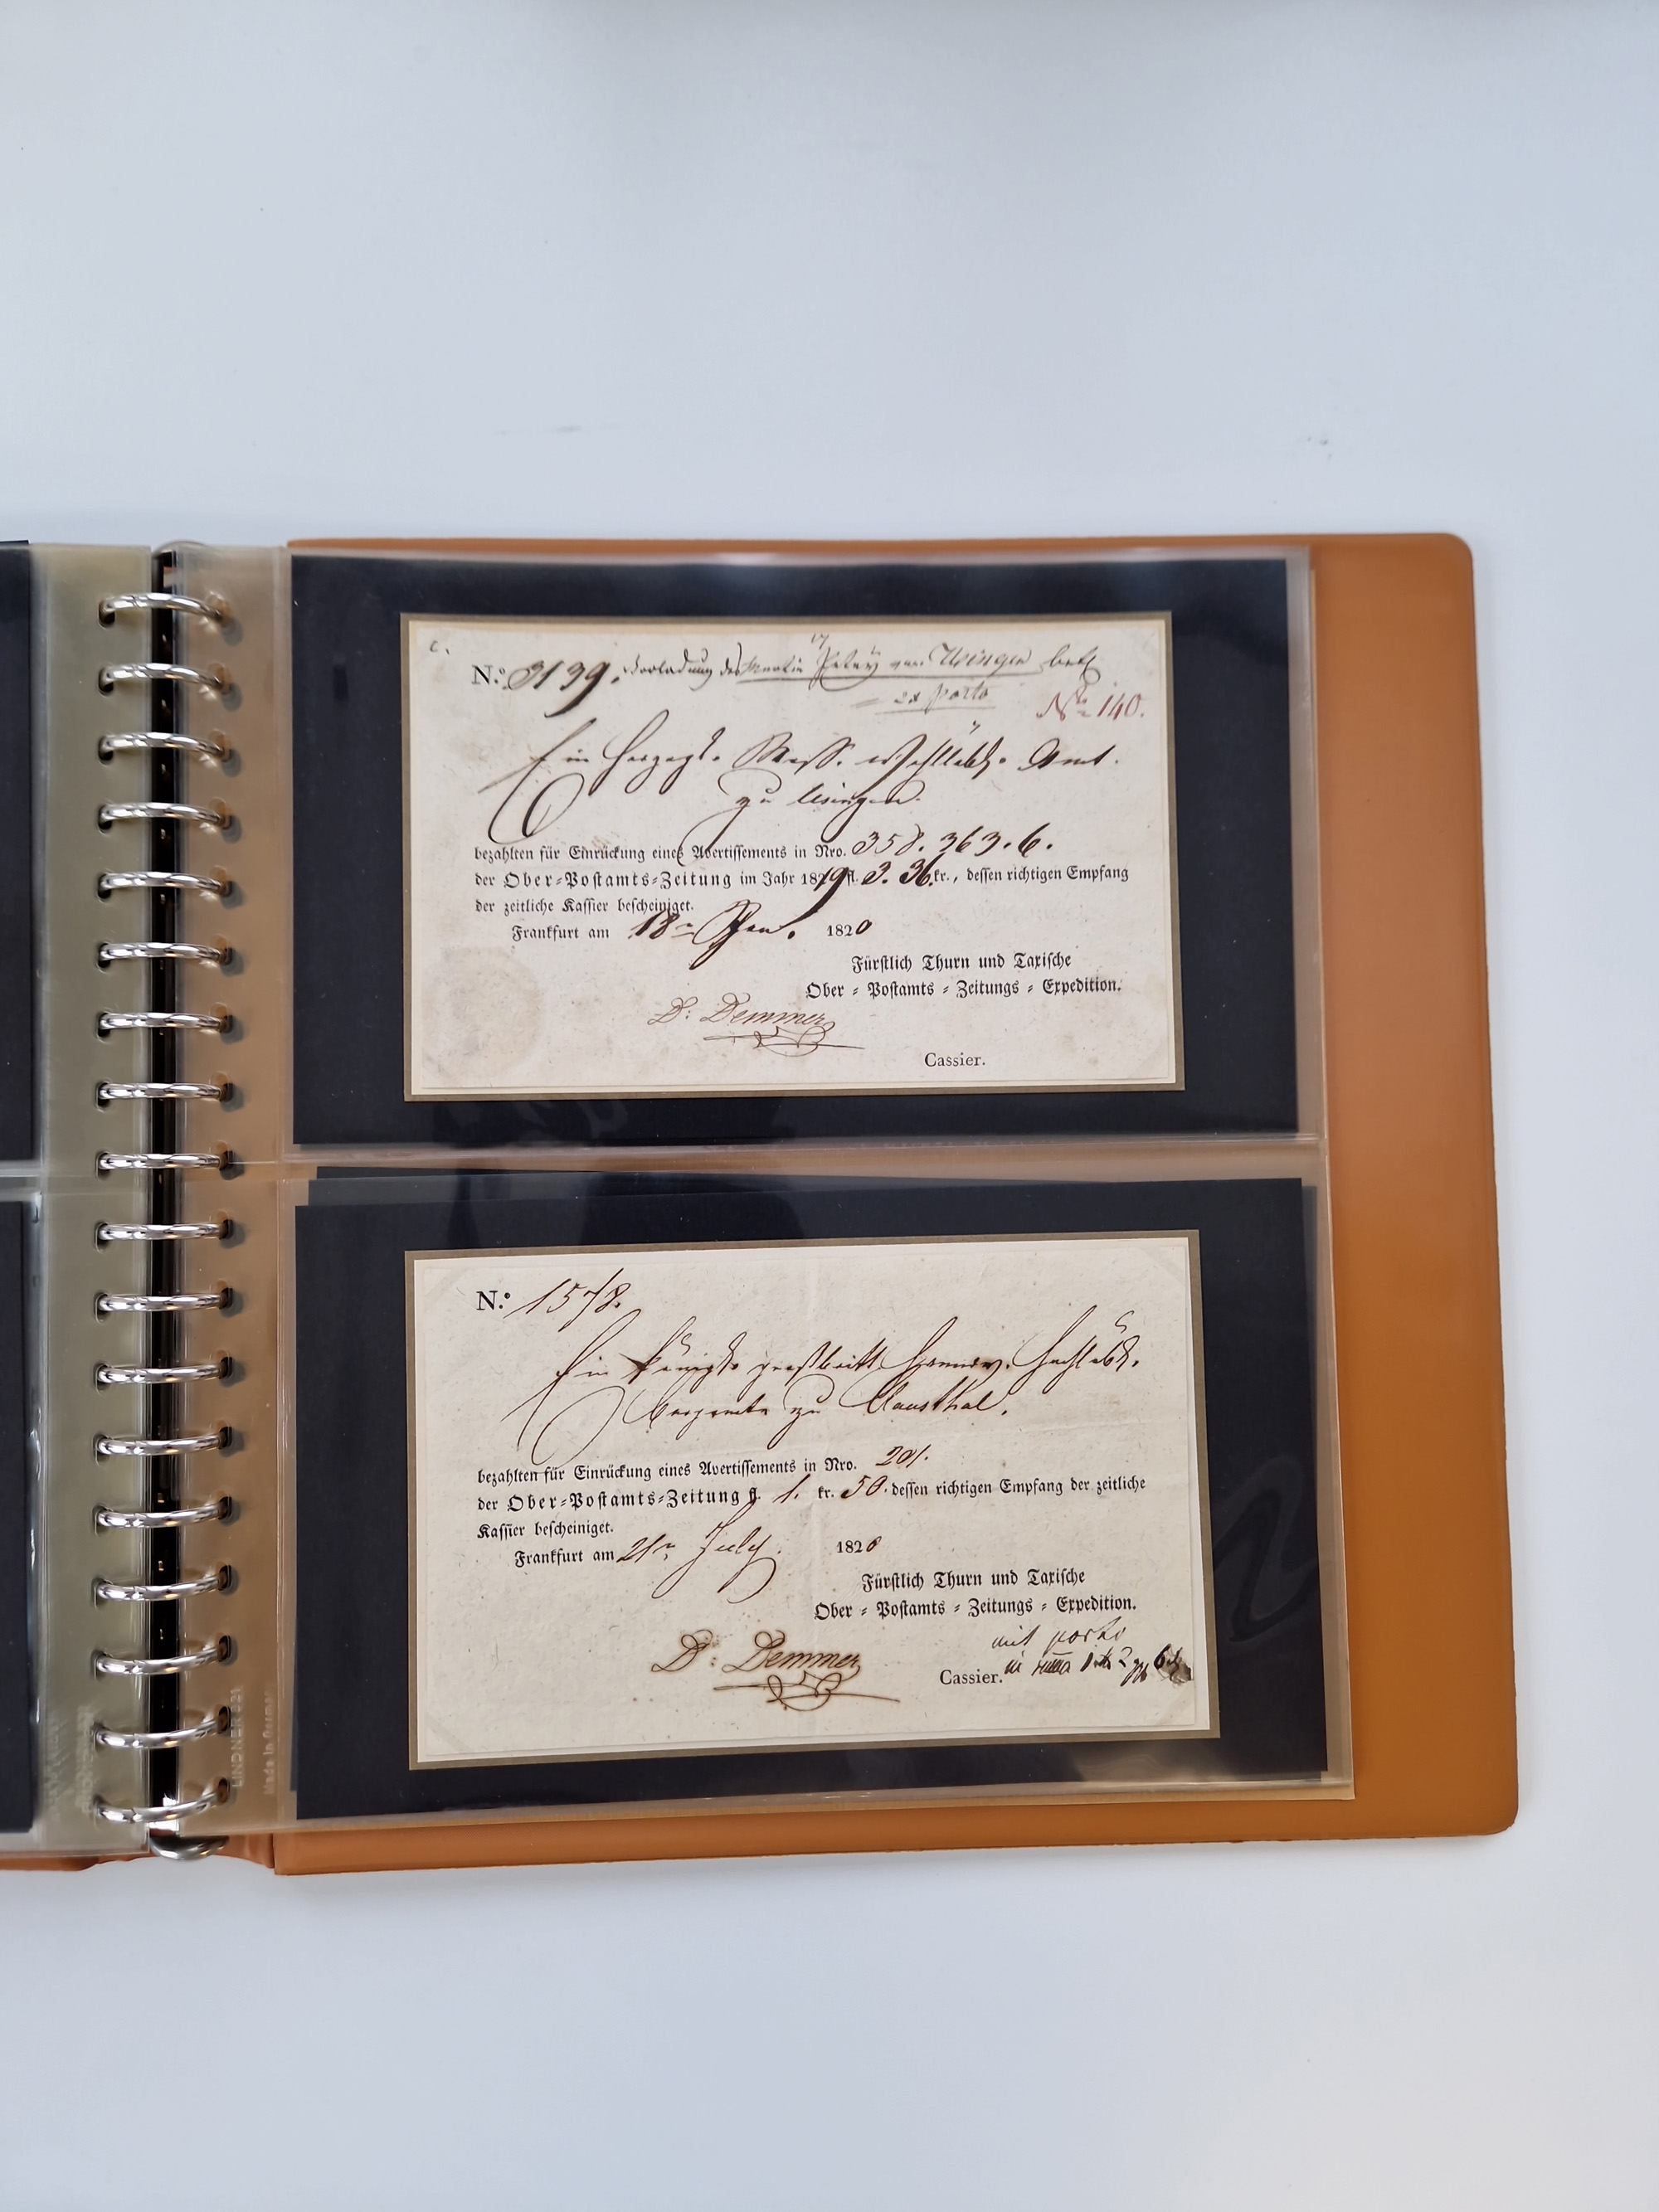 c.
N.º 3139. Vorladung des Martin Petry von Usingen betr.
2x porto
No 140.
Ein Herzogl. Nass. wohllöbl. Amt
zu Usingen
bezahlten für Einrückung eines Avertissements in Nro. 358. 363. 6.
der Ober-Postamts-Zeitung im Jahr 1819 fl. 3. 36 kr., dessen richtigen Empfang
der zeitliche Kassier bescheiniget.
Frankfurt am 18n Jan. 1820
Fürstlich Thurn und Taxische
Ober-Postamts-Zeitungs-Expedition.
D: Demmer
Cassier.
N.º 1578.
Ein Königl. grosbritt. Hannöv. Hochlöbl.
Bergamte zu Clausthal.
bezahlten für Einrückung eines Avertissements in Nro. 201.
der Ober-Postamts-Zeitung fl. 1. kr. 50. dessen richtigen Empfang der zeitliche
Kassier bescheiniget.
Frankfurt am 21n July. 1820
Fürstlich Thurn und Taxische
Ober-Postamts-Zeitungs-Expedition.
mit porto
D: Demmer
Cassier. in
LINDNER